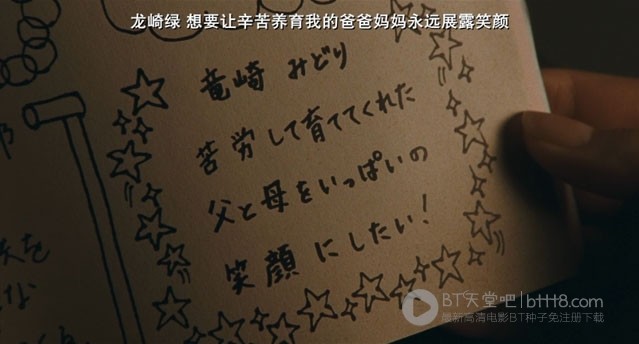 龙崎绿 想要让辛苦养育我的爸爸妈妈永远展露笑颜
竜崎 みどり
苦労して育ててくれた
父と母をいっぱいの
笑顔にしたい!
BT天堂吧|bttt8.com
最新高清电影BT种子免注册下载